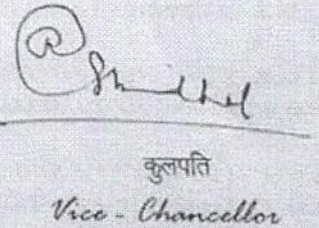 कुलपति
Vice - Chancellor